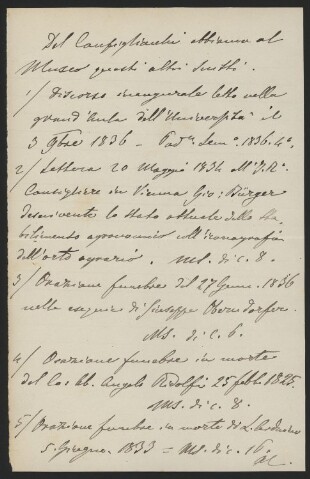 Del Configliachi abbiamo al
Museo questi altri scritti.
1/ Discorso inaugurale letto nella
grand'Aula dell'Università il
3 9bre 1836 – Padª Semº. 1836. 4º.
2/ Lettera 20 Maggio 1834 all'I. R.
Consigliere in Vienna Gio: Bürger
descrivente lo stato attuale dello Sta-
bilimento agronomico coll'iconografia
dell'orto agrario. Ms. di c. 8.
3/ Orazione funebre del 27 Genn. 1836
nelle esequie di Giuseppe Oberndorfer.
Ms. di c. 6.
4/ Orazione funebre in morte
del Co. Ab. Angelo Ridolfi 25 febb. 1825.
Ms. di c. 8.
5/ Orazione funebre in morte di
5 Giugno 1833 = Ms. di c. 16.